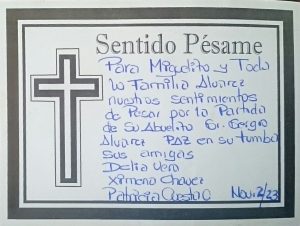 Sentido Pésame
Para Miguelito y Toda
la Familia Alvarez
nuestros sentimientos
de Pesar por la Partida
de su Abuelito Sr. Sergio
Alvarez PAZ en su tumba
sus amigas
Delia Vera
Ximena Chavez
Patricia Nov. 2/23